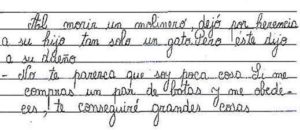 Al morir un molinero, dejó por herencia
a su hijo tan solo un gato. Pero éste dijo
a su dueño
- No te parezca que soy poca cosa. Si me
compras un par de botas y me obede-
ces, te conseguiré grandes cosas